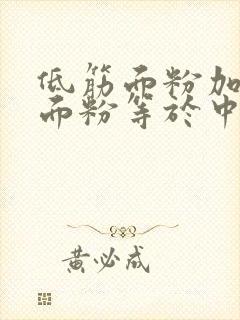 低筋面粉加
面粉等於中
黄必成